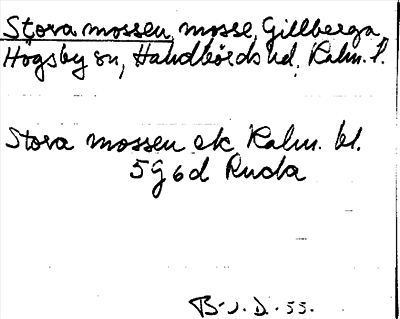 Stora mossen, mosse, Gillberga,
Högsby sn, Handbörds hd, Kalm. l.
Stora mossen ek Kalm. bl.
5G6d Ruda
B-J.D.-55.